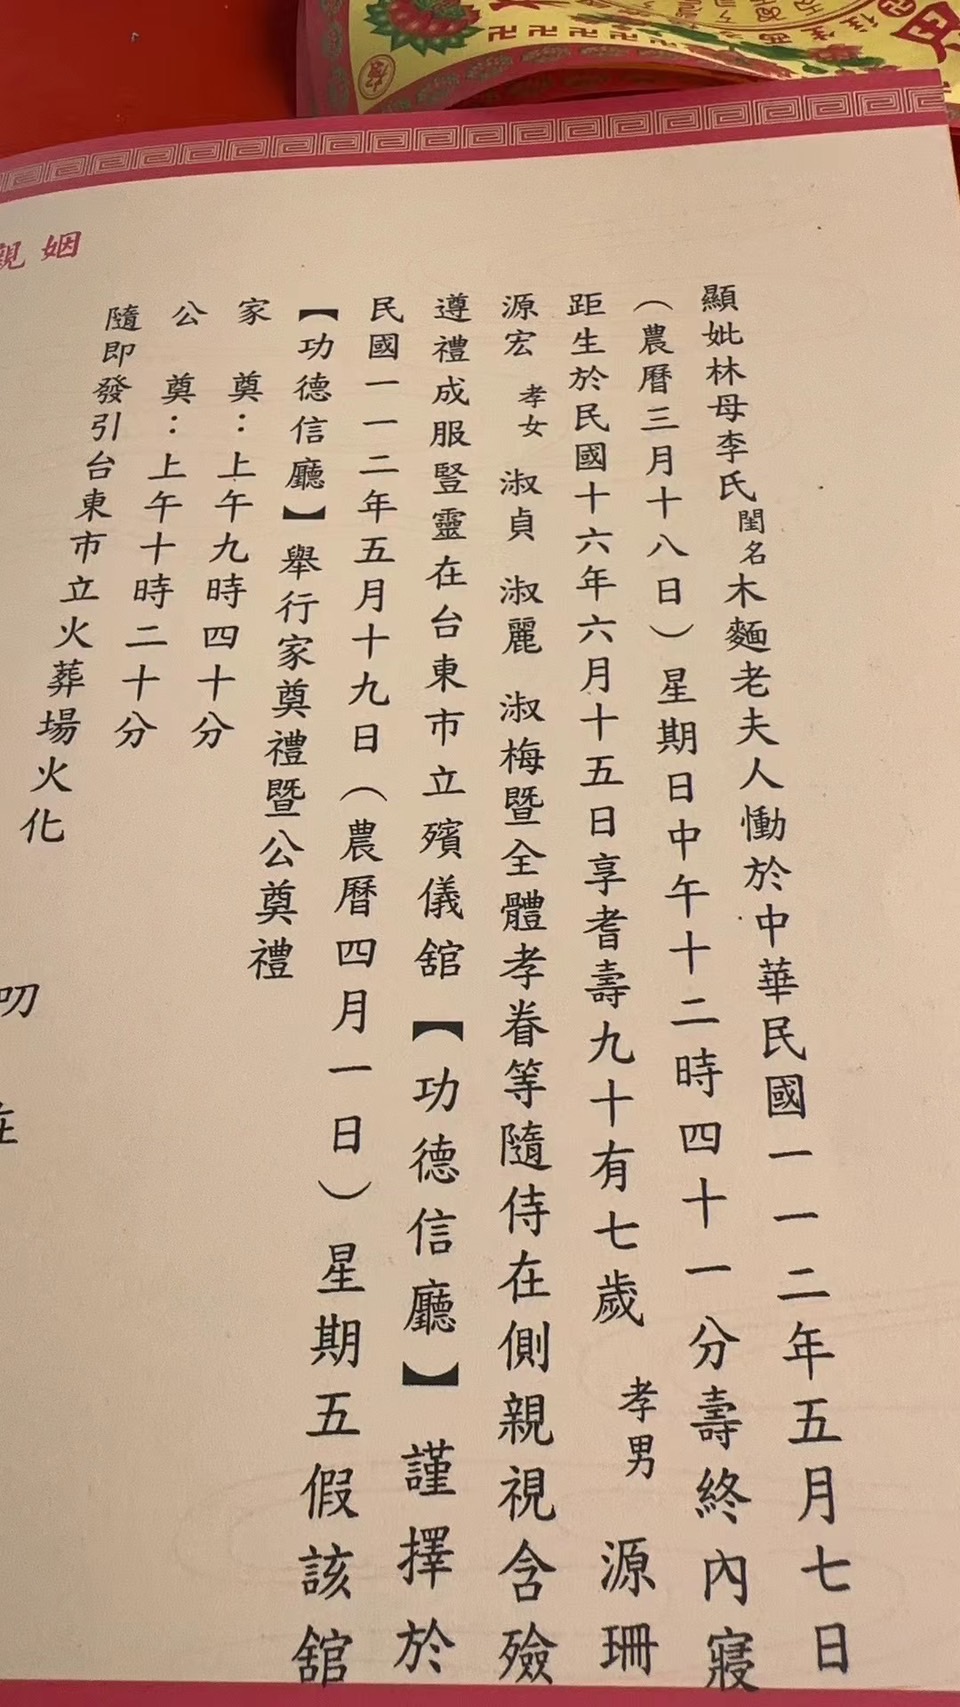 顯妣林母李氏閨名木麵老夫人慟於中華民國一一二年五月七日
（農曆三月十八日）星期日中午十二時四十一分壽終內寢
距生於民國十六年六月十五日享耆壽九十有七歲 孝男 源珊
源宏 孝女 淑貞 淑麗 淑梅暨全體孝眷等隨侍在側親視含殮
遵禮成服豎靈在台東市立殯儀舘【功德信廳】謹擇於
民國一一二年五月十九日（農曆四月一日）星期五假該舘
【功德信廳】舉行家奠禮暨公奠禮
家 奠：上午九時四十分
公 奠：上午十時二十分
隨即發引台東市立火葬場火化
叨 在
姻 親